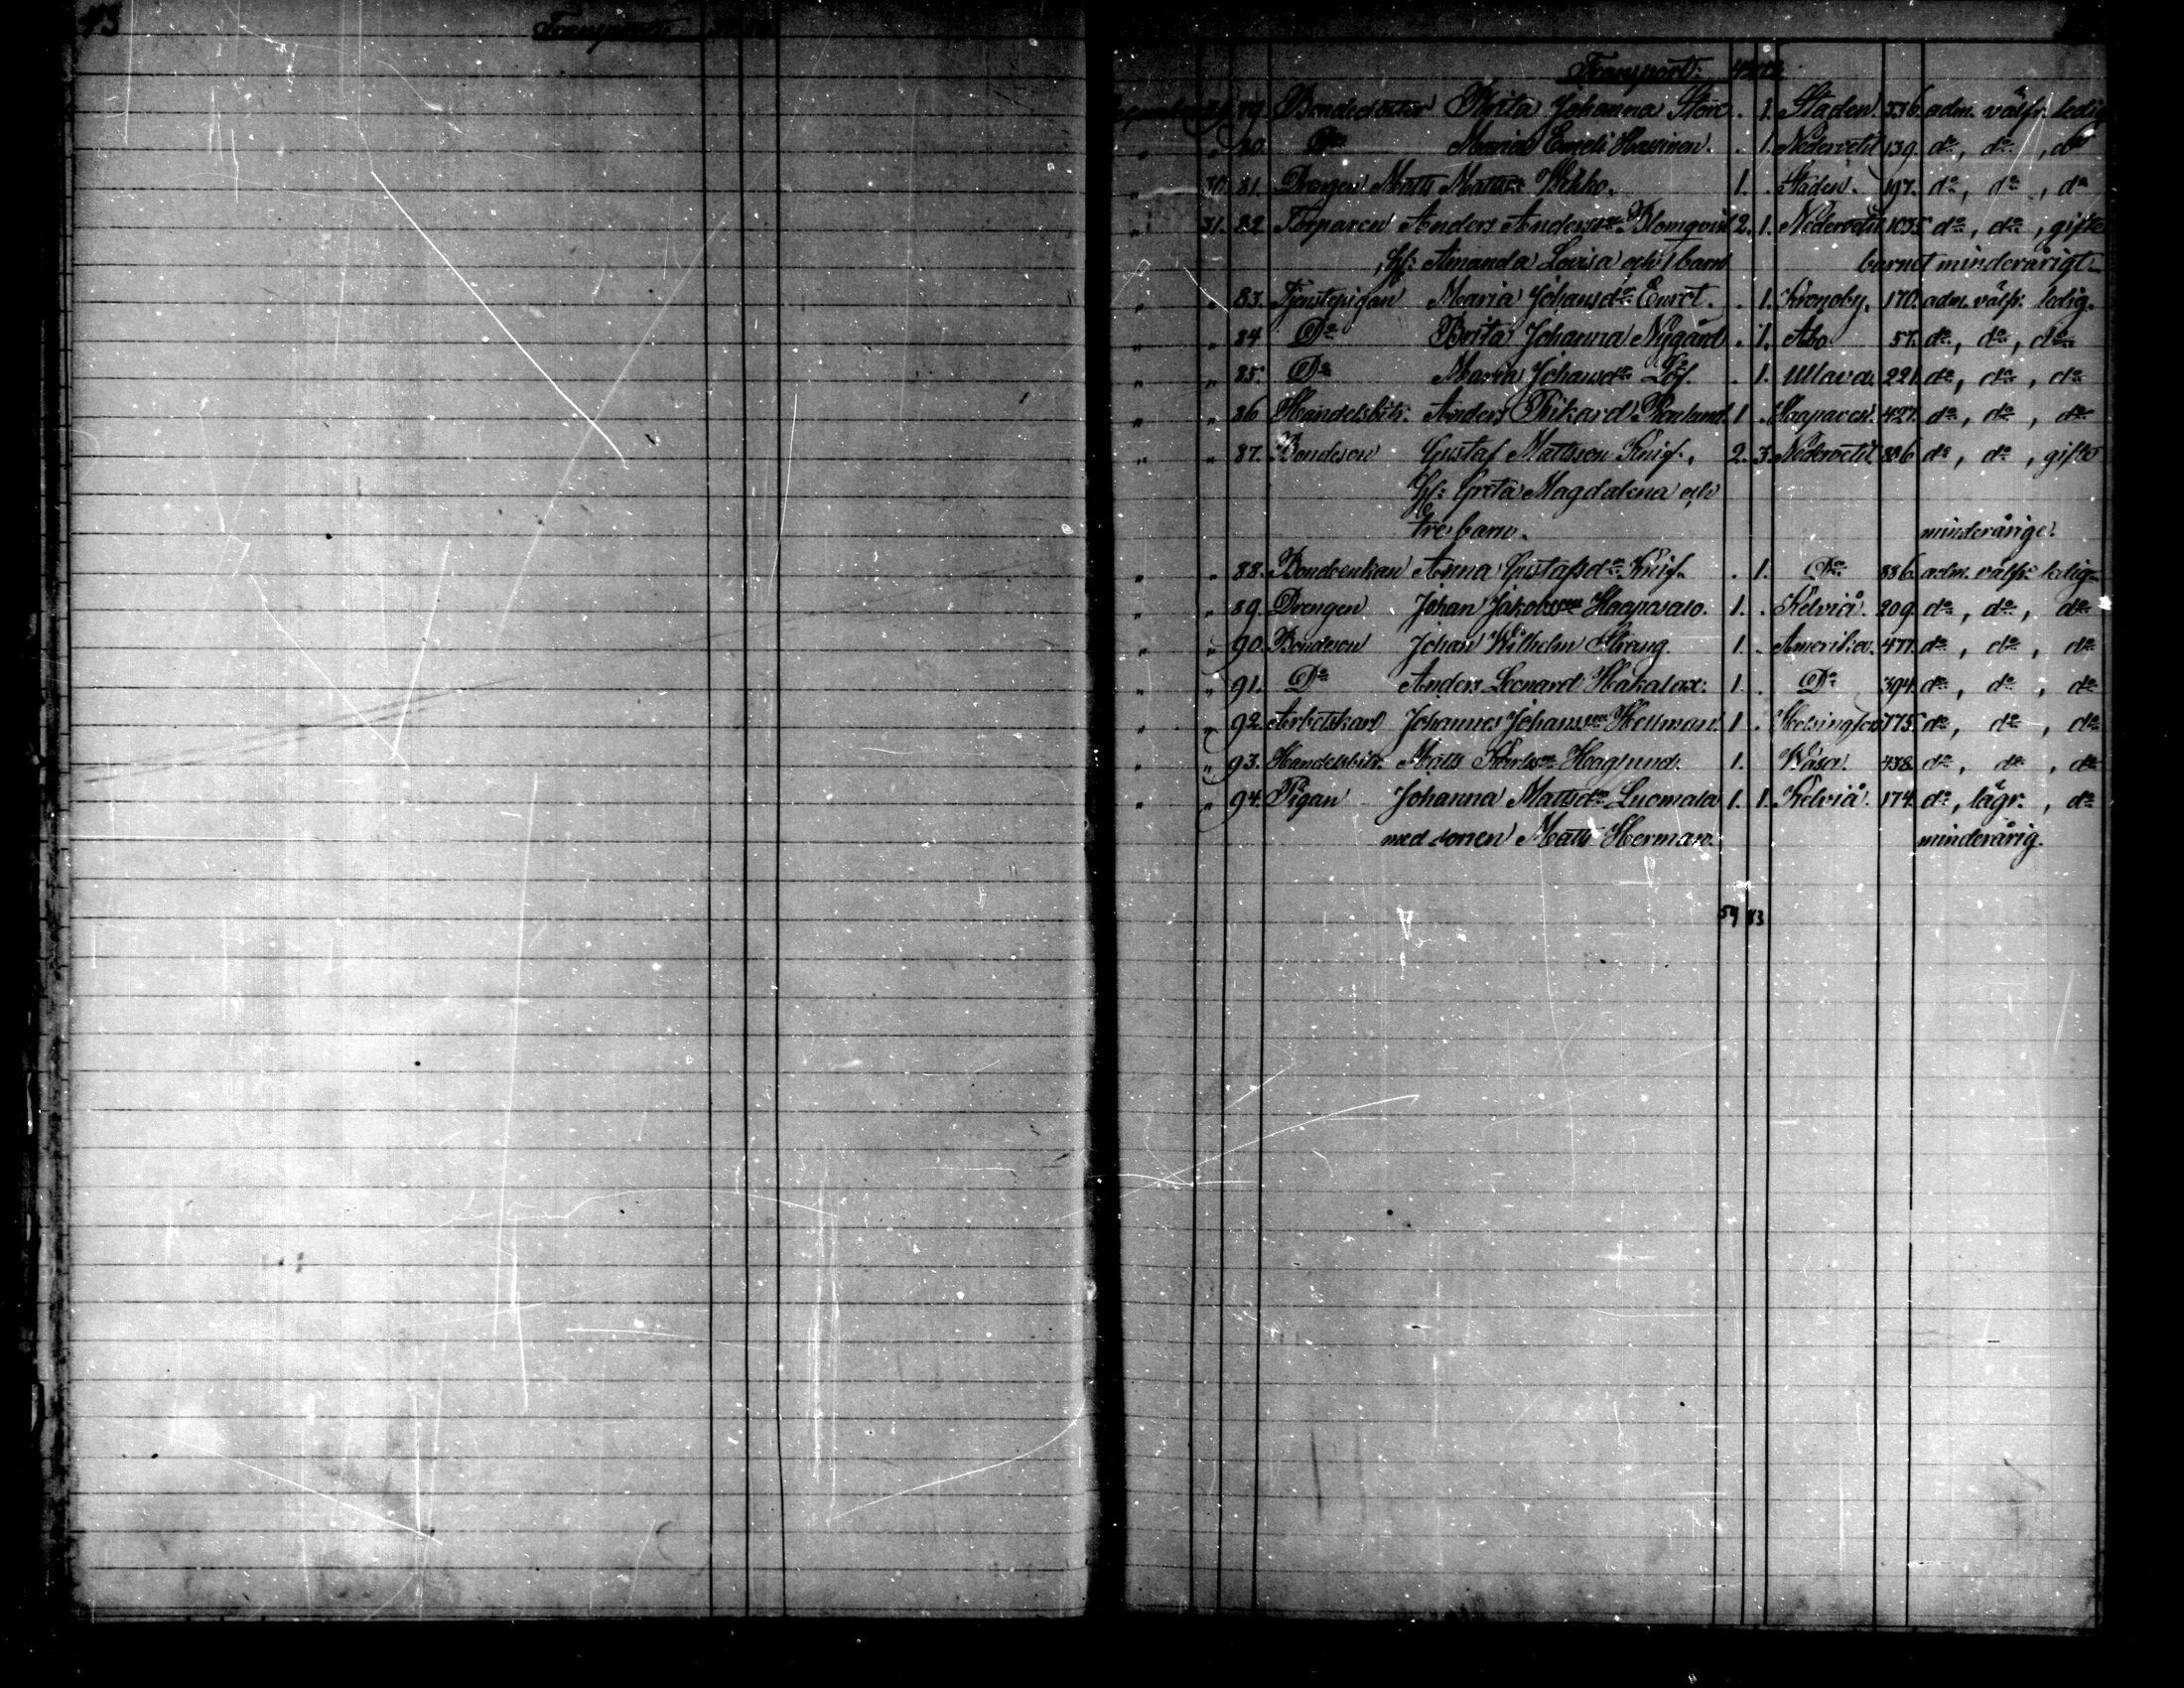 73
Transport
Transport:
79. Bondedotter Brita Johanna Stor . 1. Staden. 336. adm. välfr. ledig
" " 80. Do Maria Emeli Hassinen. . 1. Nedervetil 139. do, do, do
" 30. 81. Drängen Matts Mattss. Wehko. 1. . Staden. 197. do, do, do
" 31. 82 Torparen Anders Anderss. Blomqvist 2. 1. Nedervetil 1035 do, do, gifte
Hf: Amanda Lovisa och 1 barn barnet minderårigt
" " 83. Tjenstepigan Maria Johansdr. . 1. Kronoby. 170. adm. välfr. ledig.
" " 84 Do Brita Johanna Nygård . 1. Åbo 57. do, do, do
" " 85. Do Maria Johansdr. Löf. . 1. Ullava. 221. do, do, do
" " 86 Handelsbitr. Anders Rikard Roslund. 1 . Haapavesi. 427. do, do, do
" " 87. Bondeson Gustaf Mattsson Knif, 2. 3. Nedervetil 886 do, do, gifte
Hf: Greta Magdalena och
tre barn. minderårige.
" " 88. Bondeenkan Anna Gustafsdr. Knif. . 1. Do 886. adm. välfr. ledig
" " 89. Drengen Johan Jakobsson Haapasalo. 1. . Kelviå. 209. do, do, do
" " 90. Bondeson Johan Wilhelm Strang. 1. . Amerika. 477. do, do, do
" " 91. Do Anders Leonard Hakalax. 1. . Do 394. do, do, do
" " 92. Arbetskarl Johannes Johansson Hellman. 1. . Helsingfors 775. do, do, do
" " 93. Handelsbitr. Matts Karlss. Haglund. 1. Wasa. 438. do, do, do
" " 94. Pigan Johanna Mattsdr. Luomala 1. 1. Kelviå. 174. do, lägr., do
med sonen Matts Herman. minderårig.
59 83